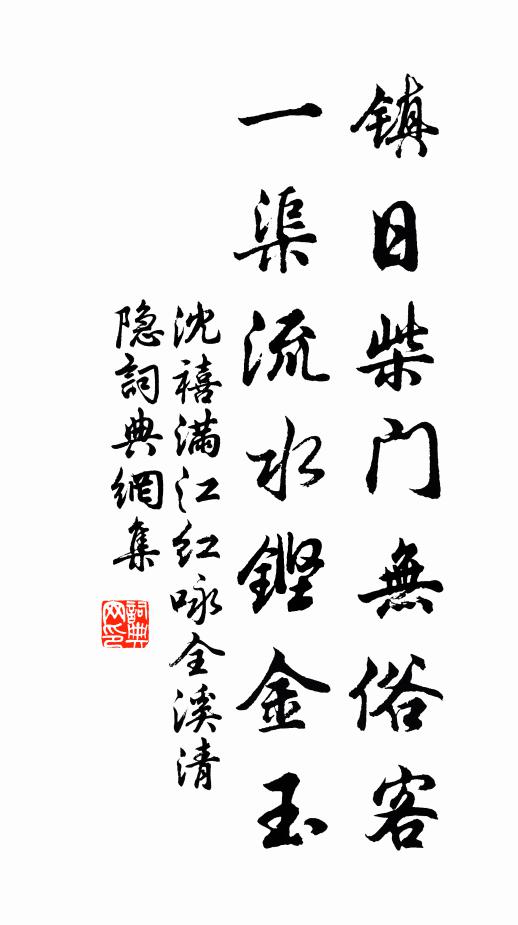 镇日柴门無俗客
一渠流水鏗金玉
沈禧满江红咏全溪清
隐詞典網集
詞典网印